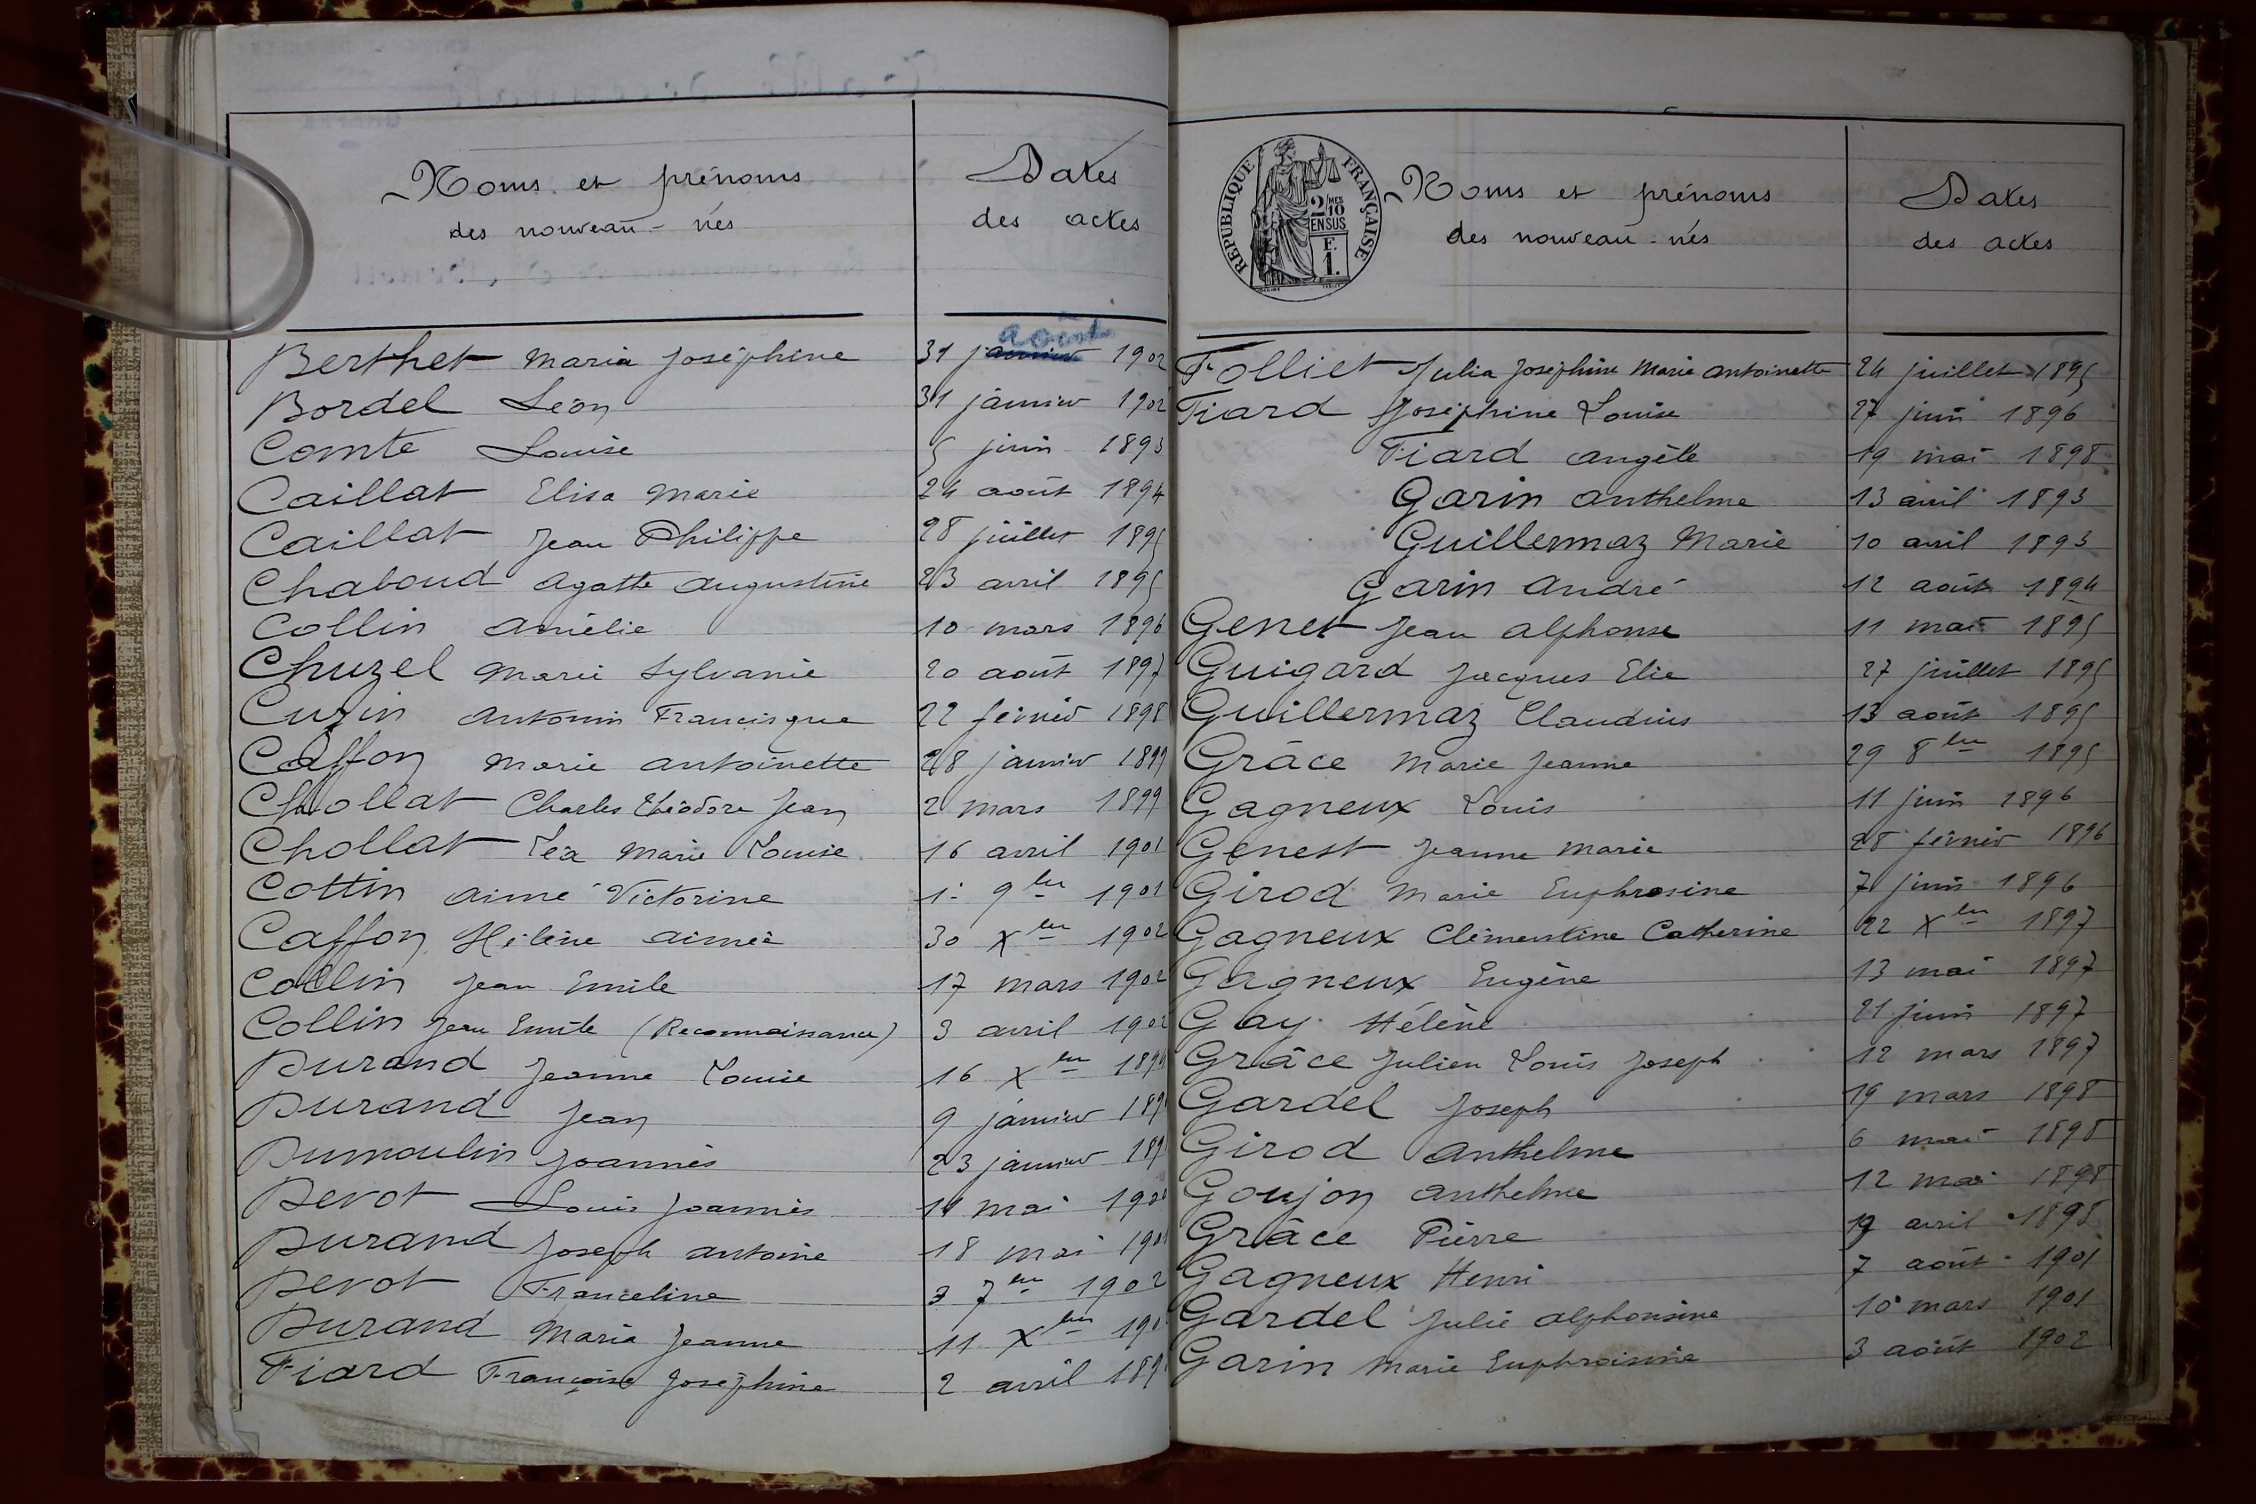 Noms et prénoms
des nouveau-nés
Dates
des actes
Berthet Maria Joséphine 31 janvier août 1902
Bordel Léon 31 janvier 1902
Comte Louise 5 juin 1893
Caillat Elisa Marie 24 août 1894
Caillat Jean Philippe 28 juillet 1895
Chaboud Agathe Augustine 23 avril 1895
Collin Amélie 10 mars 1896
Chuzel Marie Sylvanie 20 août 1897
Cuzin Antonin Francisque 22 février 1898
Caffon Marie Antoinette 28 janvier 1899
Chollat Charles Théodore Jean 2 mars 1899
Chollat Léa Marie Louise 16 avril 1901
Cottin Aimé Victorine 1er 9bre 1901
Caffon Hélène Aimée 30 Xbre 1902
Collin Jean Emile 17 mars 1902
Collin Jean Emile (Reconnaissance) 3 avril 1902
Durand Jeanne Louise 16 Xbre
Durand Jean 9 janvier
Dumoulin Joannès 23 janvier
Devot Louis Joannès 11 mai
Durand Joseph Antoine 18 mai
Devot Franceline 3 7bre 1902
Durand Maria Jeanne 11 Xbre
Fiard Françoise Joséphine 2 avril
RÉPUBLIQUE FRANÇAISE
2/10 MES
EN SUS
F.
1.
Noms et prénoms
des nouveau-nés
Dates
des actes
Folliet Julia Joséphine Marie Antoinette 24 juillet 1895
Fiard Joséphine Louise 27 juin 1896
Fiard Angèle 19 mai 1898
Garin Anthelme 13 avril 1893
Guillermaz Marie 10 avril 1893
Garin André 12 août 1894
Genet Jean Alphonse 11 mai 1895
Guigard Jacques Elie 27 juillet 1895
Guillermaz Claudius 13 août 1895
Grâce Marie Jeanne 29 8bre 1895
Gagneux Louis 11 juin 1896
Genest Jeanne Marie 28 février 1896
Girod Marie Euphrosine 7 juin 1896
Gagneux Clémentine Catherine 22 Xbre 1897
Gagneux Eugène 13 mai 1897
Gay Hélène 21 juin 1897
Grâce Julien Louis Joseph 12 mars 1897
Gardel Joseph 19 mars 1898
Girod Anthelme 6 mai 1898
Goujon Anthelme 12 mai 1898
Grâce Pierre 19 avril 1898
Gagneux Henri 7 août 1901
Gardel Julie Alphonsine 10 mars 1901
Garin Marie Euphroisine 3 août 1902